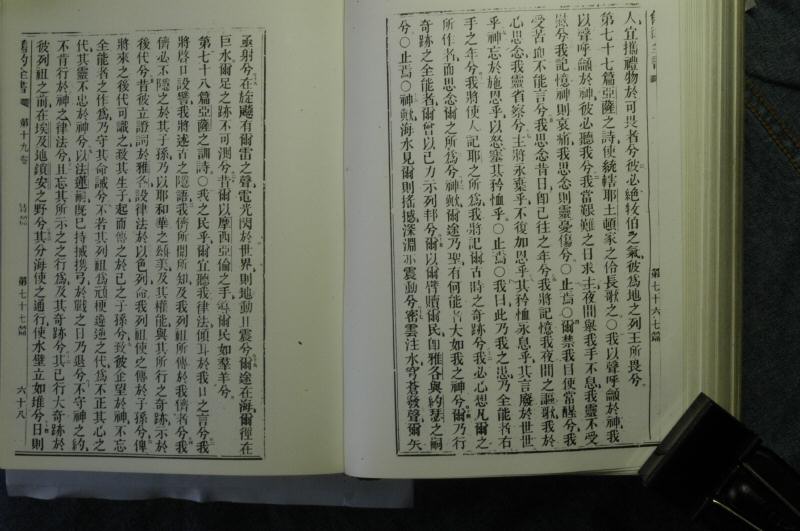 人宜攜禮物於可畏者兮彼必絶牧伯之氣彼爲地之列王所畏兮
第七十七篇亞薩之詩使統轄耶土頓家之伶長歌之○我以聲呼籲於神我
以聲呼籲於神彼必聽我兮我當艱難之日求主夜間舉我手不息我靈不受
慰兮我記憶神則哀痛我思念則靈憂傷兮○止焉○爾禁我目使常醒兮我
受苦而不能言兮我思念昔日即已往之年兮我將記憶我夜間之謳歌我於
心思念我靈省察兮主將永棄乎不復加恩乎其矜恤永息乎其言廢於世世
乎神忘於施恩乎以怒塞其矜恤乎○止焉○我曰此乃我之患乃全能者右
手之年兮我將使人記耶之所爲我將記爾古時之奇跡兮我必心想凡爾之
所作者而思念爾之所爲兮神歟爾途乃聖有何能者大如我之神兮爾乃行
奇跡之全能者爾曾以己力示列邦兮爾以爾臂贖爾民即雅各與約瑟之嗣
兮○止焉○神歟海水見爾見爾則搖撼深淵亦震動兮密雲注水穹蒼發聲爾矢
第七十六七篇
亟射兮在旋飈有爾雷之聲電光閃於世界則地動且震兮爾途在海爾徑在
巨水爾足之跡不可測兮昔爾以摩西亞倫之手導爾民如羣羊兮
第七十八篇亞薩之訓詩○我之民乎爾宜聽我律法傾耳於我口之言兮我
將啓口設譬我將述古之隱語我儕所聞所知及我列祖所傳於我儕者兮我
儕必不隱之於其子孫乃以耶和華之頌美及其權能與其所行之奇跡示於
後代兮昔彼立證詞於雅各設律法於以色列命我列祖使之傳於子孫兮俾
將來之後代可識之致其生子起而傳之於己之子孫兮致彼企望於神不忘
全能者之作爲乃守其命誡兮不若其列祖爲頑梗違逆之代爲不正其心之
代其靈不忠於神兮以法蓮嗣旣已持械攜弓於戰之日乃退兮不守神之約
不肯行於神之律法兮且忘其所示之之行爲及其奇跡兮其已行大奇跡於
彼列祖之前在埃及地鎖安之野兮其分海使之通行使水壁立如堆兮日則
舊約全書 第十九卷 詩篇 第七十七篇 六十八